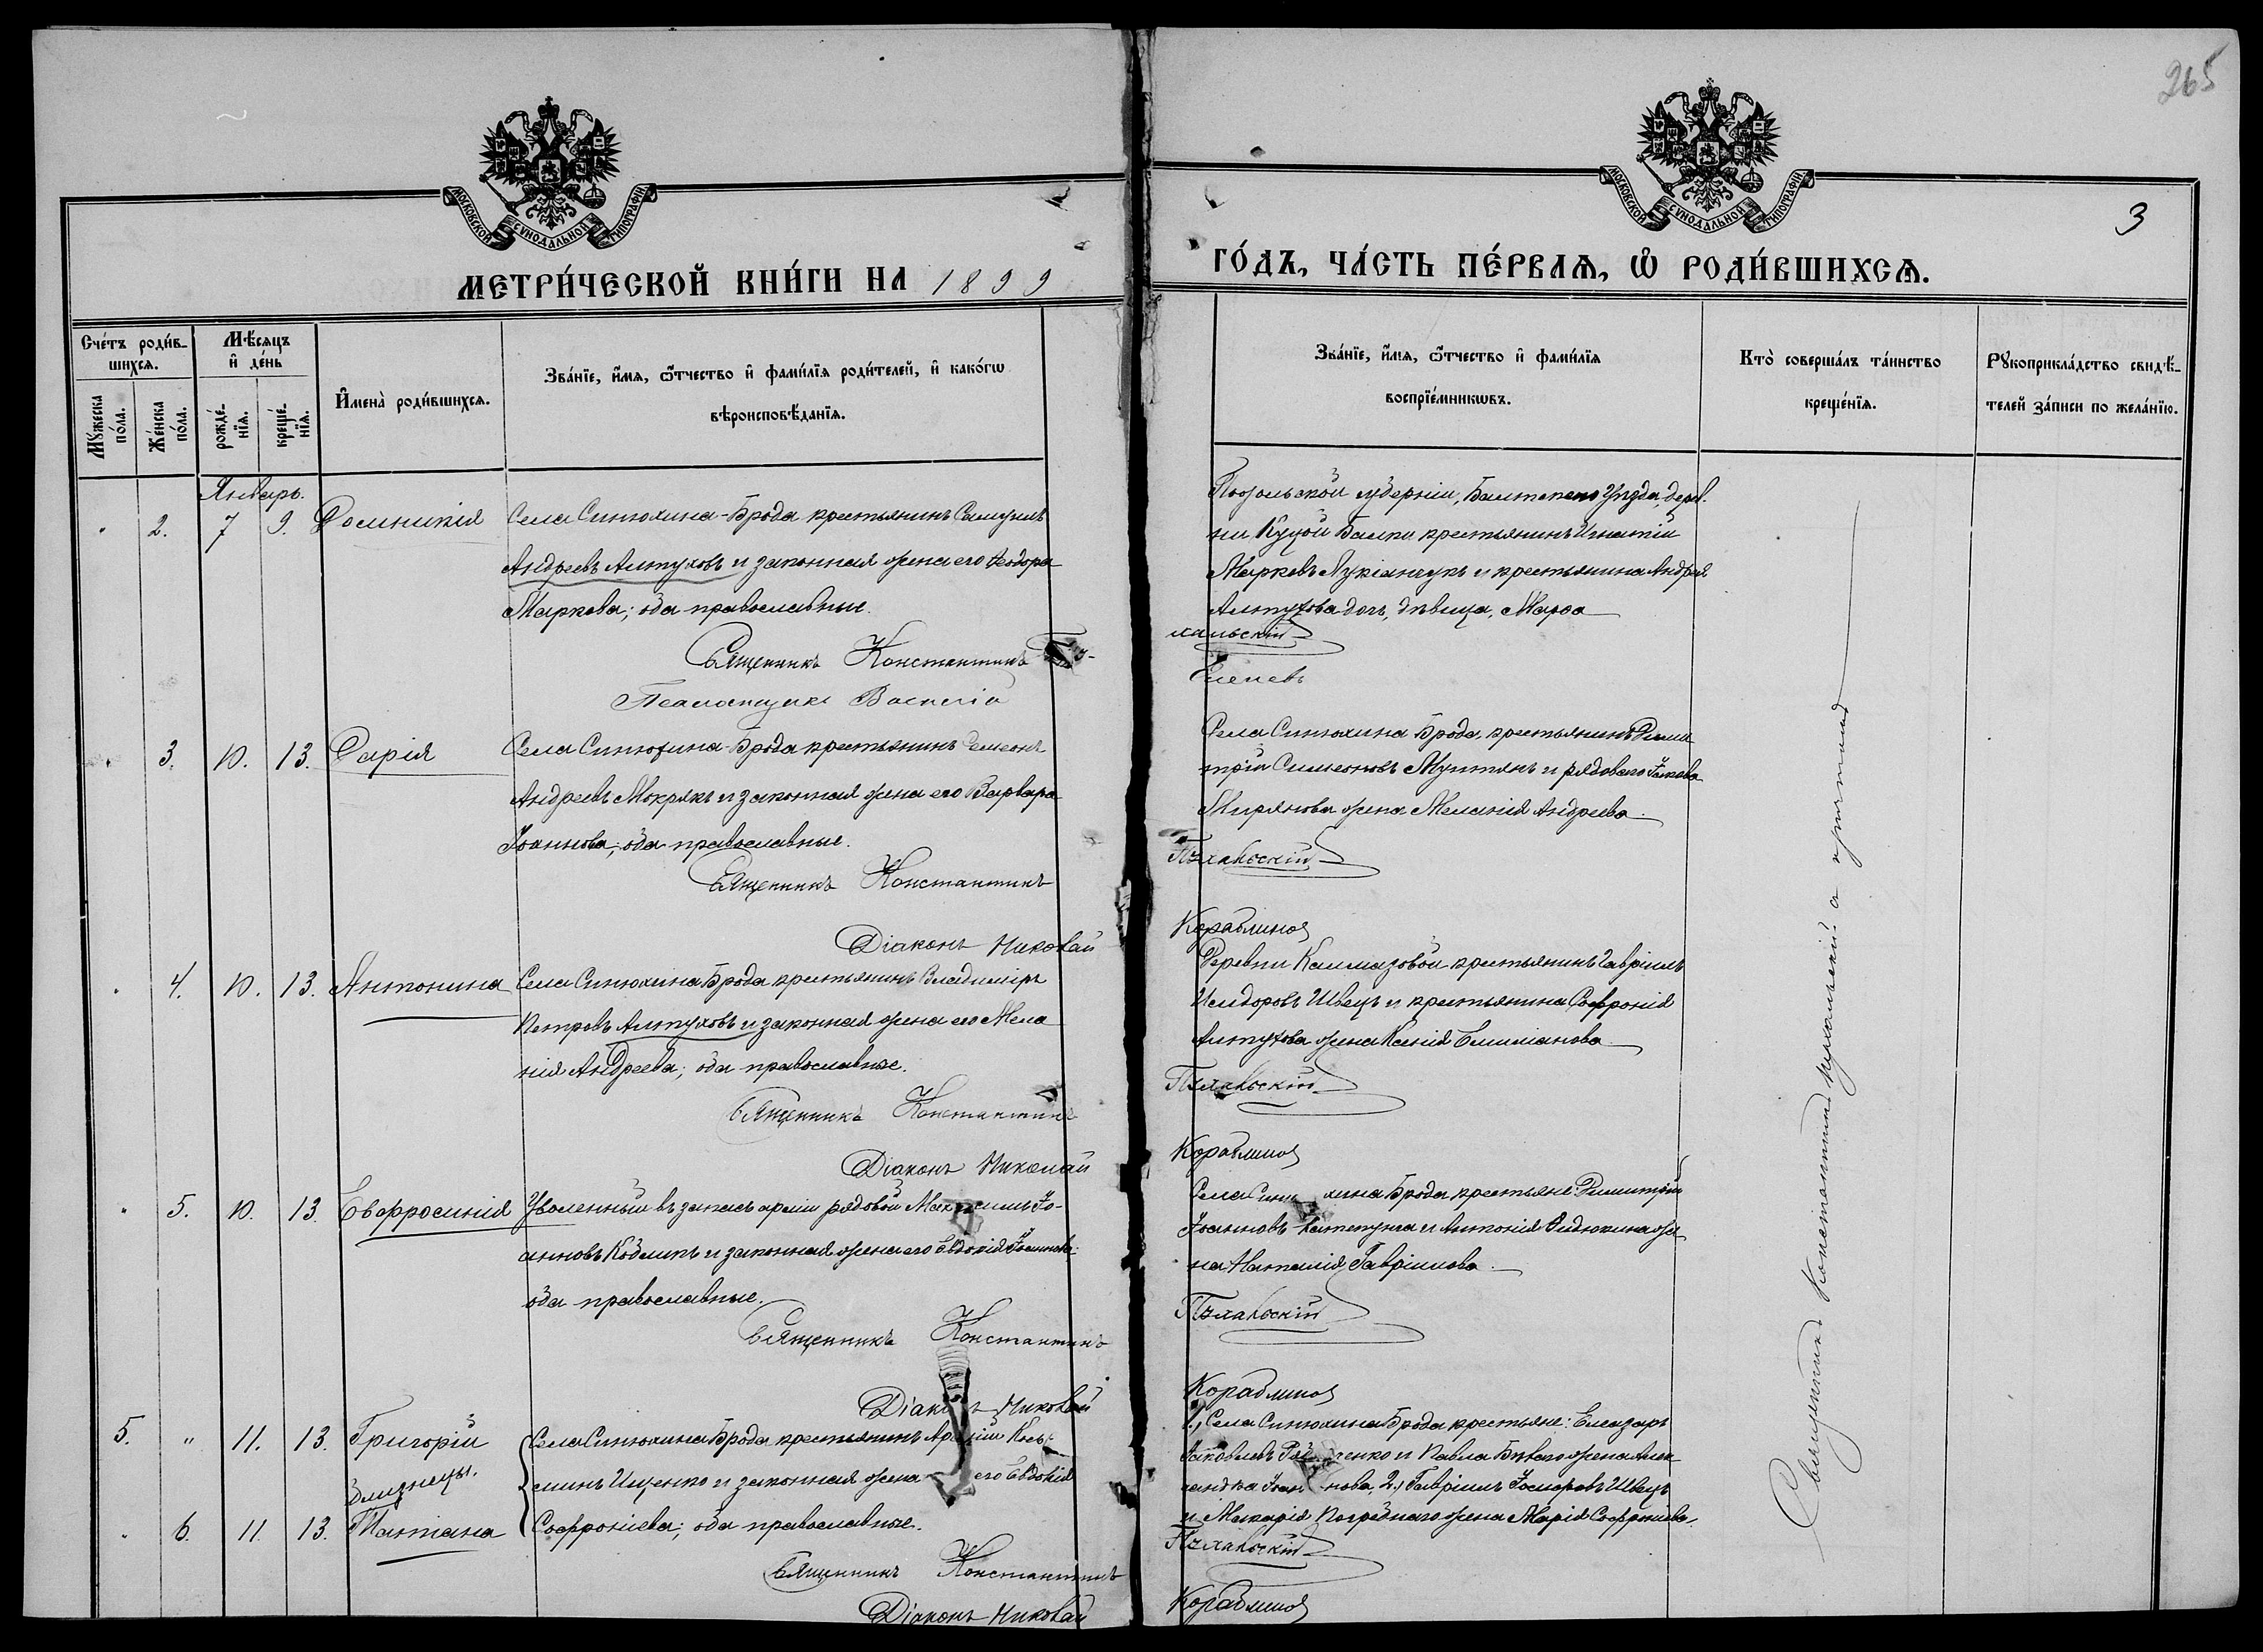 265
МОСКОВСКОЙ СѴНОДАЛЬНОЙ ТИПОГРАФІИ
МОСКОВСКОЙ СѴНОДАЛЬНОЙ ТИПОГРАФІИ
3
МЕТРИ́ЧЕСКОЙ КНИ́ГИ НА 1899
ГО́ДЪ, ЧА́СТЬ ПЕ́РВАѦ, Ѡ҆ РОДИ́ВШИХСѦ.
Сче́тъ роди́в-
шихсѧ.
Мꙋ́жеска по́ла.
Же́нска по́ла.
Мѣ́сѧцъ и҆ де́нь
рожде́-нїѧ.
креще́-нїѧ.
И҆мена̀ роди́вшихсѧ.
Зва́нїе, и҆́мѧ, ѻ҆́тчество и҆ фами́лїѧ роди́телей, и҆ како́гѡ
вѣроисповѣ́данїѧ.
Зва́нїе, и҆́мѧ, ѻ҆́тчество и҆ фами́лїѧ
воспрїе́мникѡвъ.
Кто̀ соверша́лъ та́инство
креще́нїѧ.
Рꙋкоприкла́дство свидѣ́-
телей за́писи по жела́нїю.
Январь.
2. 7 9. Домникія Села Синюхина-Брода крестьянинъ Самуилъ
Андреевъ Алтуховъ и законная жена его Ѳеодора
Маркова; оба православные.
Священникъ Константинъ
Псаломщикъ Василій
Подольской губерніи, Балтскаго уѣзда, дерев-
ни Куцой Балки крестьянинъ Игнатій
Марковъ Лукіанчукъ и крестьянина Андрея
Алтухова дочь, дѣвица, Марѳа
хальскій
3. 10. 13. Дарія Села Синюхина-Брода крестьянинъ Симеонъ
Андреевъ Мокрякъ и законная жена его Варвара
Іоаннова; оба православные.
Священникъ Константинъ
Діаконъ Николай
Села Синюхина Брода, крестьянинъ Дими-
трій Симеоновъ Мунтянъ и рядового Іакова
Мирянова жена Меланія Андреева.
Пухальскій
Кораблиновъ
4. 10. 13. Антонина Села Синюхина Брода крестьянинъ Владиміръ
Петровъ Алтуховъ и законная жена его Мела-
нія Андреева; оба православные.
Священникъ Константинъ
Діаконъ Николай
Деревни Калмазовой крестьянинъ Гавріилъ
Исидоровъ Швецъ и крестьянина Софронія
Алтухова жена Ксенія Емиліанова.
Пухальскій
Кораблиновъ
5. 10. 13. Евфросинія Уволенный въ запасъ арміи рядовой Максимъ Іо-
анновъ Кобликъ и законная жена его Евдокія Іоаннова;
оба православные.
Священникъ Константинъ
Діаконъ Николай
Села Синюхина Брода крестьяне: Димитрій
Іоанновъ и Антонія же-
на Наталія Гавріилова.
Пухальскій
Кораблиновъ
5. " 11. 13. Григорій
близнецы.
6. 11. 13. Татіана
Села Синюхина Брода крестьянинъ Кось-
минъ Ищенко и законная жена его Евдокія
Софроніева; оба православные.
Священникъ Константинъ
Діаконъ Николай
1.) Села Синюхина Брода крестьяне: Елеазаръ
Іаковлевъ и Павла жена Алек-
2.) Гавріилъ Швецъ
и Макарія Погрѣбнаго жена Марія Софроніева.
Пухальскій
Кораблиновъ
Священникъ Константинъ Пухальскій